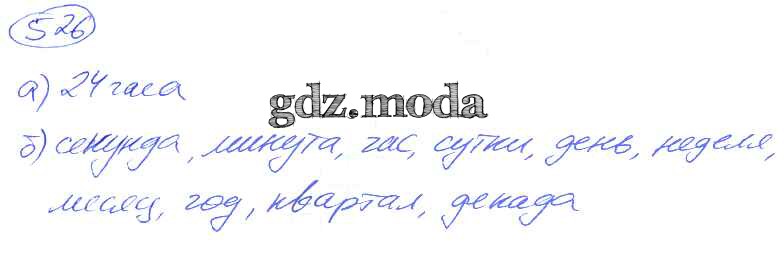 526
а) 24 часа
gdz.moda
б) секунда, минута, час, сутки, день, неделя,
месяц, год, квартал, декада